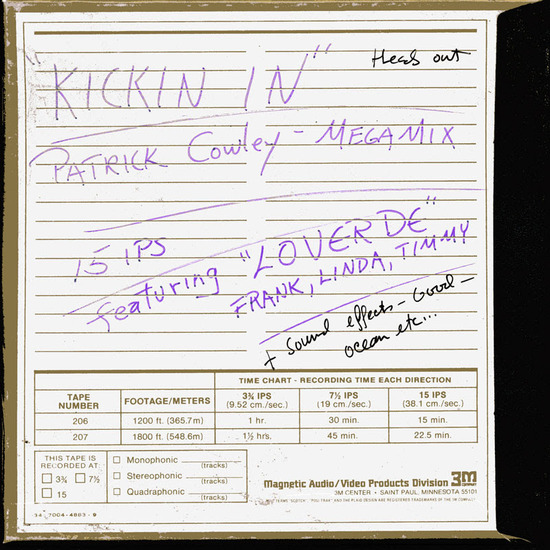 Heads out
KICKIN IN"
PATRICK Cowley - MEGAMIX
15 IPS
featuring "LOVERDE"
FRANK, LINDA, TIMMY
+ Sound effects - Good -
ocean etc...
TIME CHART - RECORDING TIME EACH DIRECTION
TAPE NUMBER FOOTAGE/METERS 3¾ IPS (9.52 cm./sec.) 7½ IPS (19 cm./sec.) 15 IPS (38.1 cm./sec.)
206 1200 ft. (365.7m) 1 hr. 30 min. 15 min.
207 1800 ft. (548.6m) 1½ hrs. 45 min. 22.5 min.
THIS TAPE IS
RECORDED AT
3¾ 7½
15
Monophonic (tracks)
Stereophonic (tracks)
Quadraphonic (tracks)
Magnetic Audio/Video Products Division 3M COMPANY
3M CENTER • SAINT PAUL, MINNESOTA 55101
ARE REGISTERED TRADEMARKS OF THE 3M COMPANY
34-7004-4883-8